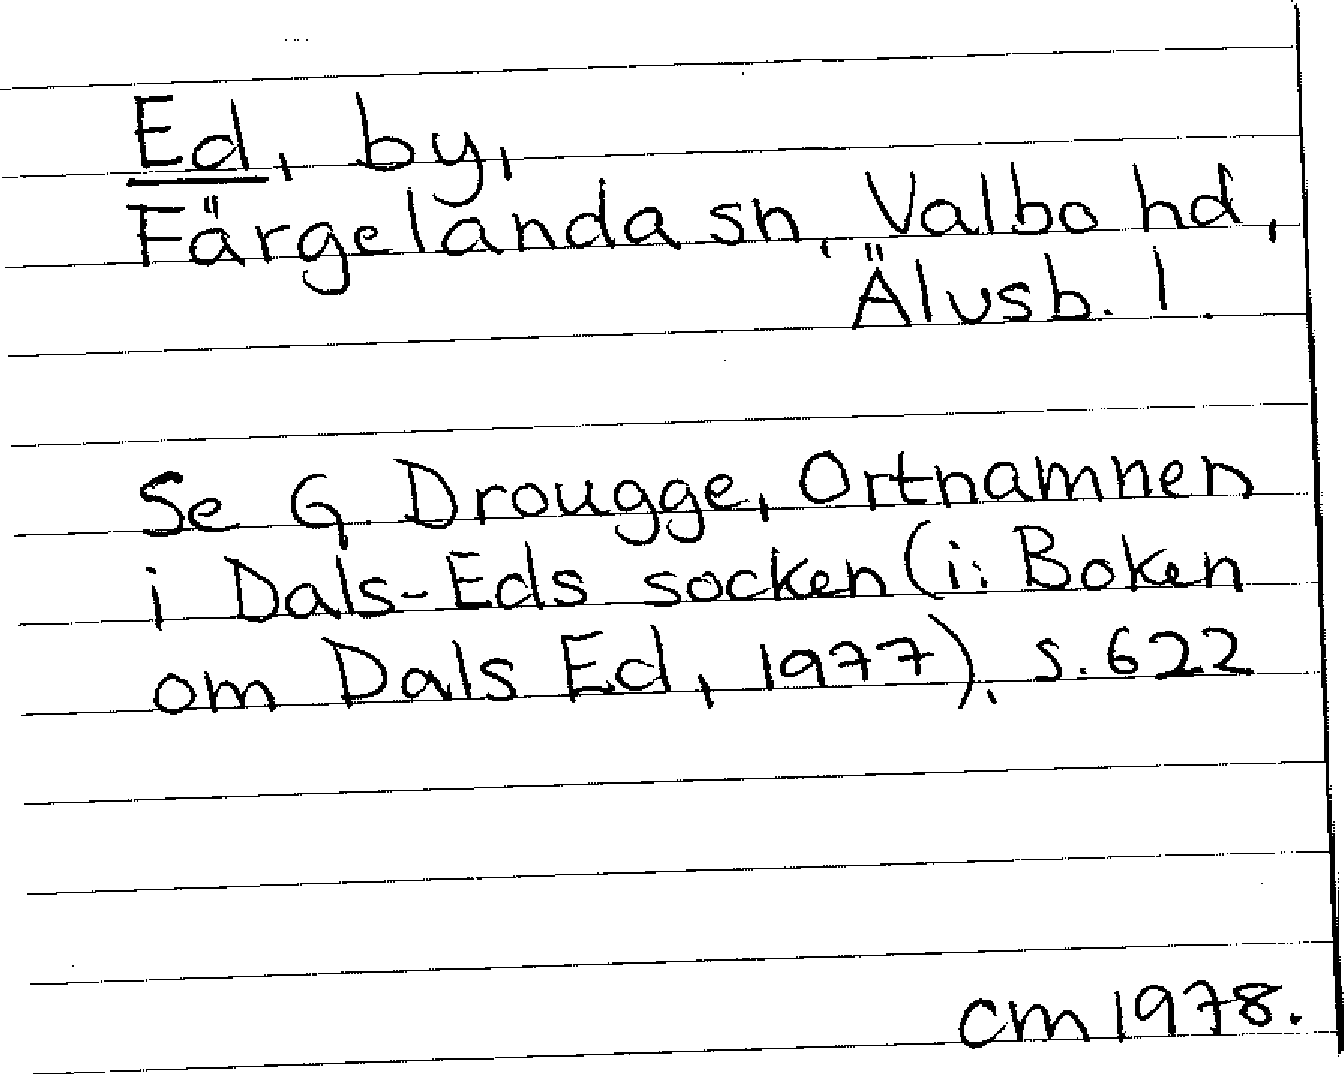 Ed, by,
Färgelanda sn, Valbo hd,
Älvsb. l.
Se G. Drougge, Ortnamnen
i Dals-Eds socken (i: Boken
om Dals Ed, 1977), s. 622
CM 1978.